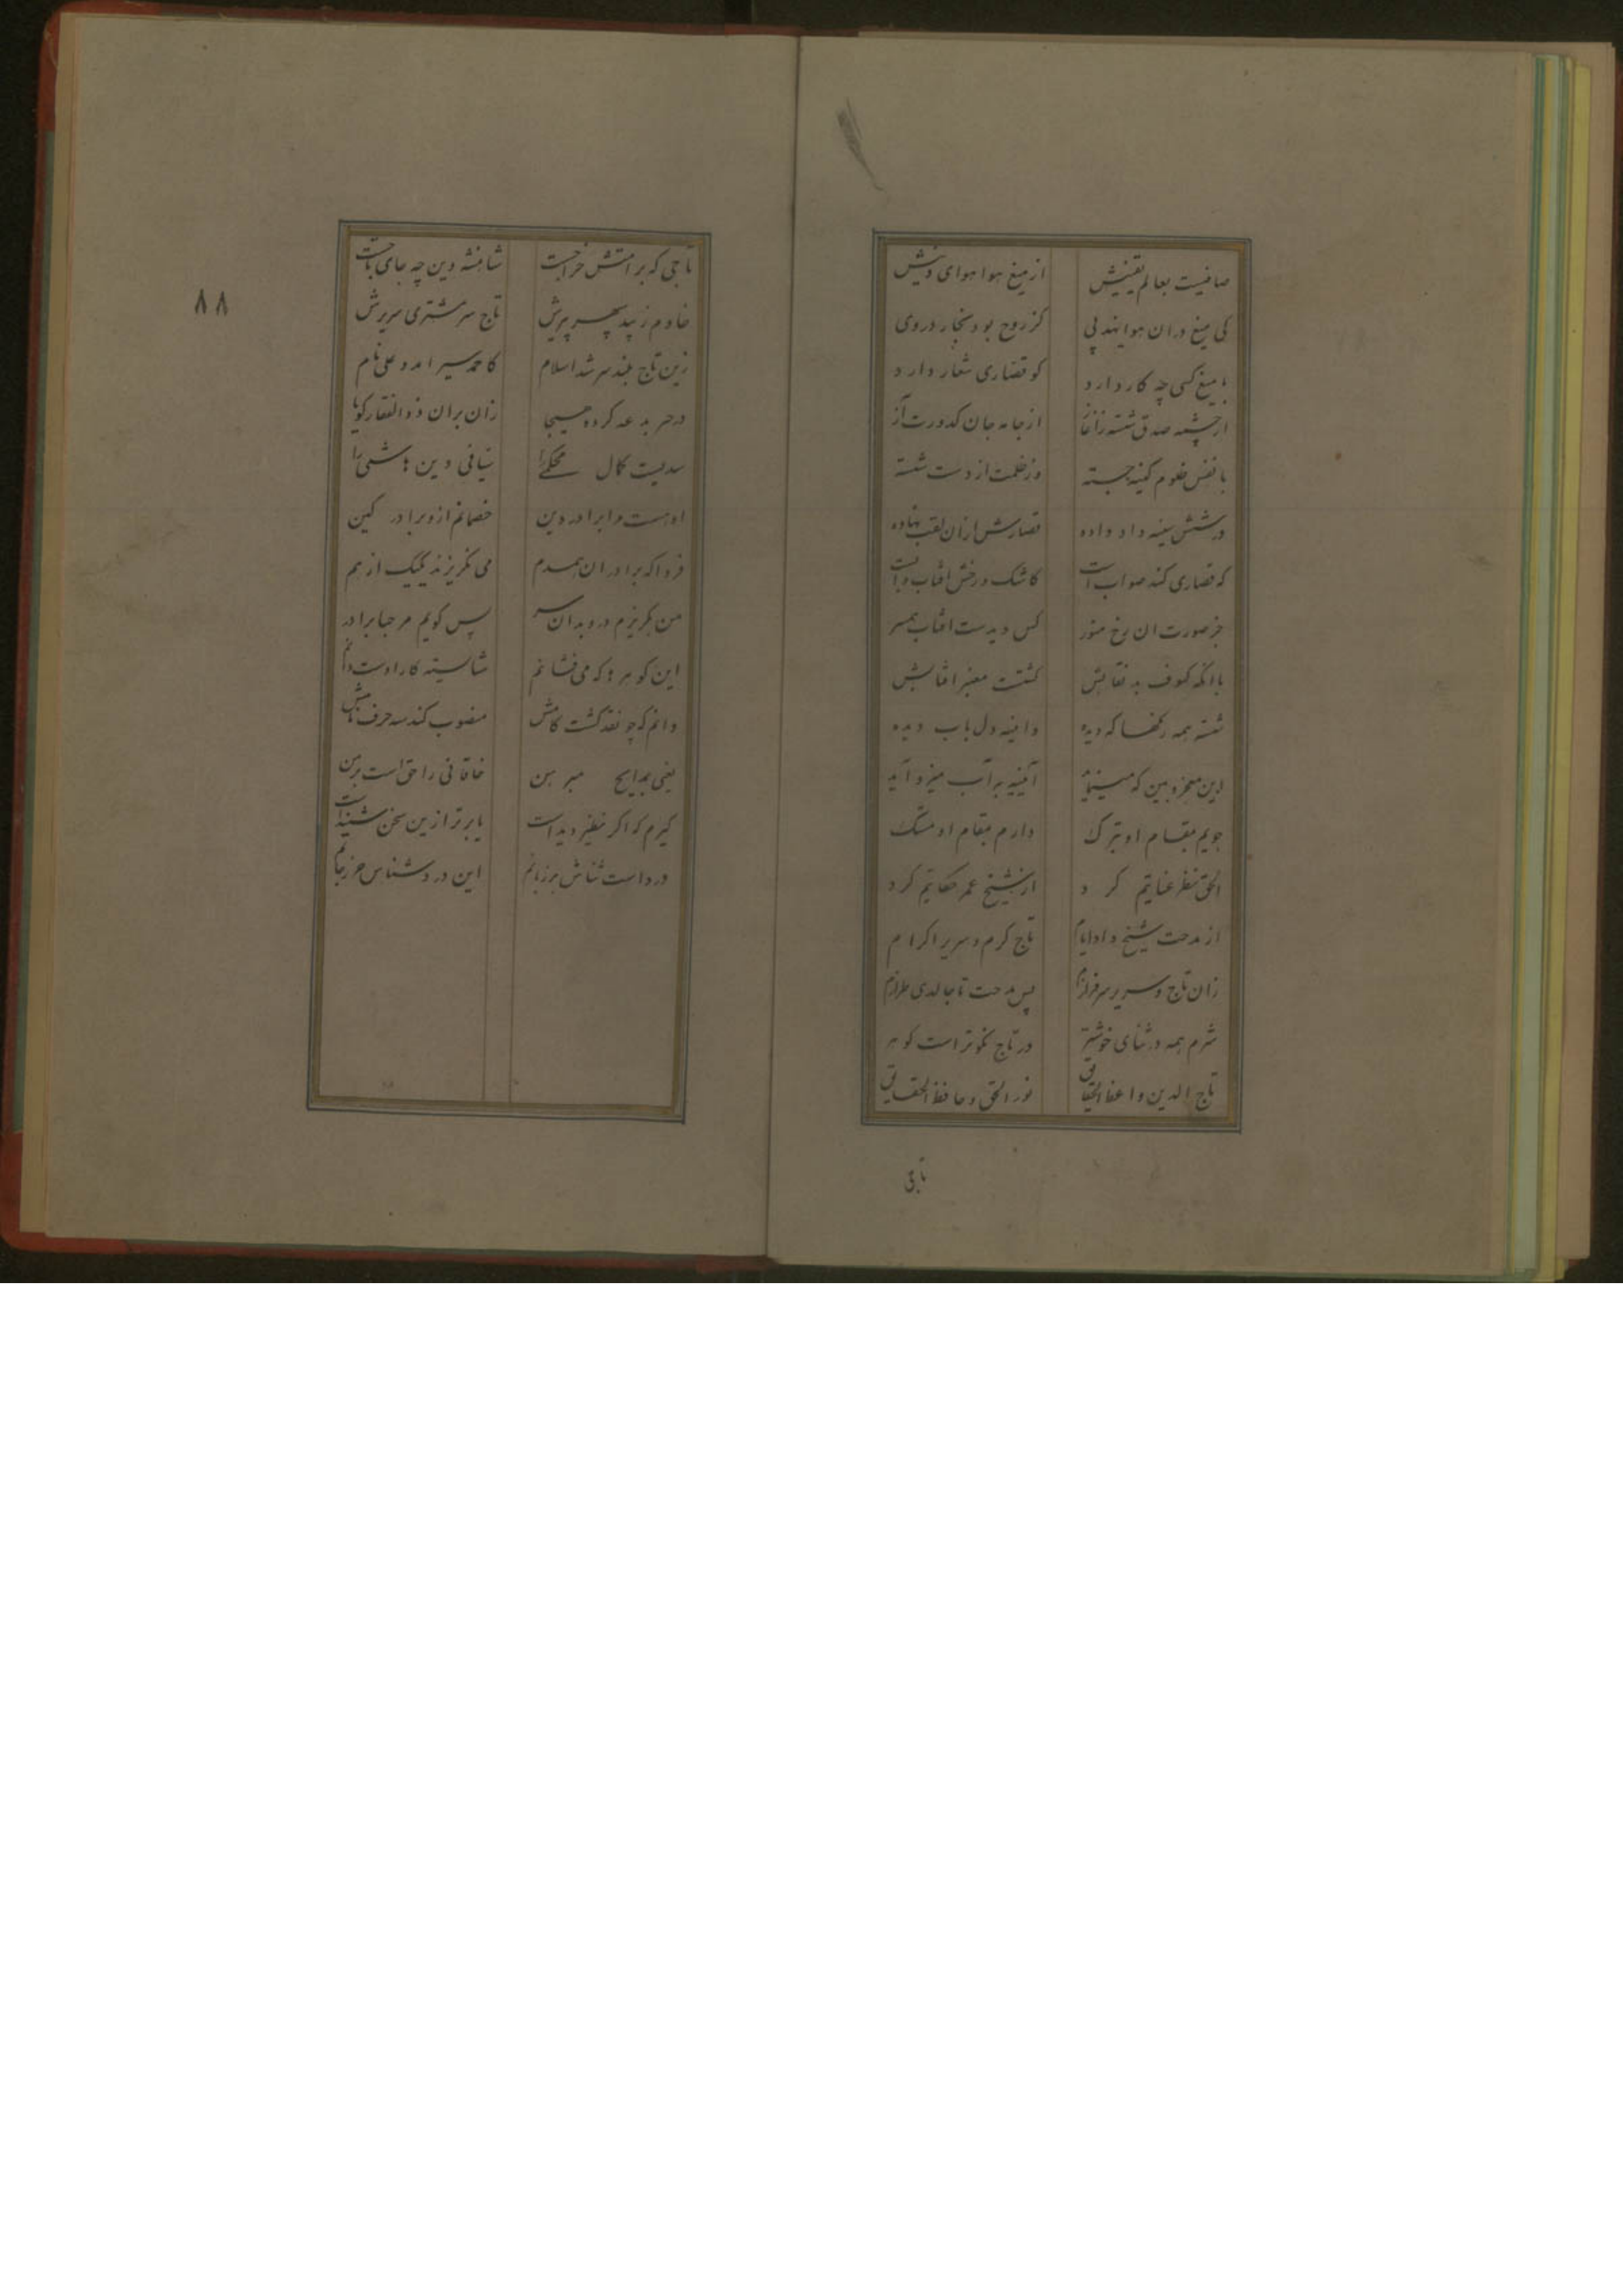 صافیست بعالم یقینش از میغ هوا هوای دینش
کی میغ در ان هوا نهد پی کز روح بود بخار در وی
با میغ کسی چه کار دارد کو قصاری شعار دارد
از چشمه صدق شسته ز اغاز از جامه جان کدورت آز
با نفس ظلوم کینه جسته وز ظلمت از دست شسته
در شش سینه داد داده قصارش ازان لقب نهاده
که قصاری کند صوابست کاشک در خش افتاب و آبست
جز صورت ان رخ منور کس دیدست افتاب همسر
با انکه کسوف بد نقابش کشتست معنبر افتابش
شسته همه رنگها که دیده وایینه دل باب دیده
این معجزه بین که مینماید آیینه بر آب میزداید
جویم بمقام او تبرک دارم بمقام او تمسک
الحق نظر عنایتم کرد از شیخ عمر حکایتم کرد
از مدحت شیخ داد ایام تاج کرم و سریر اکرام
زان تاج و سریر سرفرازم پس مدحت تاجالدی طرازم
شرم همه در ثنای خوشتر در تاج نکوتر است کوهر
تاج الدین واعظ الخلایق نور الحق و حافظ الحقایق
تاجی
۸۸
تاجی که بر امتش خراجست شاهنشه دین چه جای تاجست
خادم زیبد سپهر پیرش تاج سر مشتری سریرش
زین تاج بلند سر شد اسلام کاحمد سیر امد و علی نام
در حرب عد کرده مسیحا زان بران ذوالفقار کویا
سدیست کمال محکمی را بنیانی دین هاشمی را
او هست مرا برادر دین خصمانم ازو برادر کین
فردا که برادران همدم می بگریزند یکیک از هم
من بگریزم درو بدان سر پس کویم مرحبا برادر
این کوهرها که می فشانم شایسته کار اوست دانم
دانم که چو نقد کشت کامش منسوب کند سه حرف نامش
یعنی بمدایح مبرهن خاقانی را حق است بر من
کیرم که اکر نظیر دیداست یا برتر ازین سخن شنیداست
درد است ثناش بر زبانم این درد شناس حرز جانم